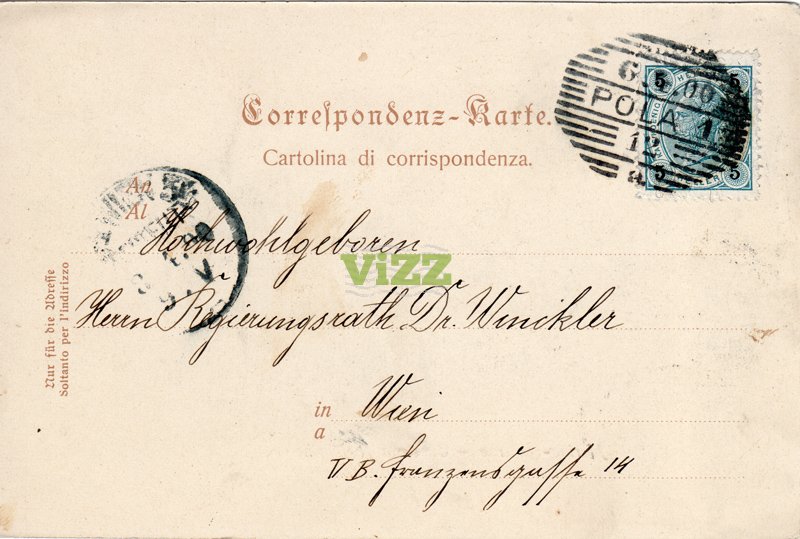 Correspondenz-Karte.
Cartolina di corrispondenza.
POLA 1
12
5 5
5 5
An
Al
Hochwohlgeboren
ViZZ
Herrn Regierungsrath Dr. Winckler
in Wien
a
V B. Franzensgasse 14
Nur für die Adresse
Soltanto per l'indirizzo